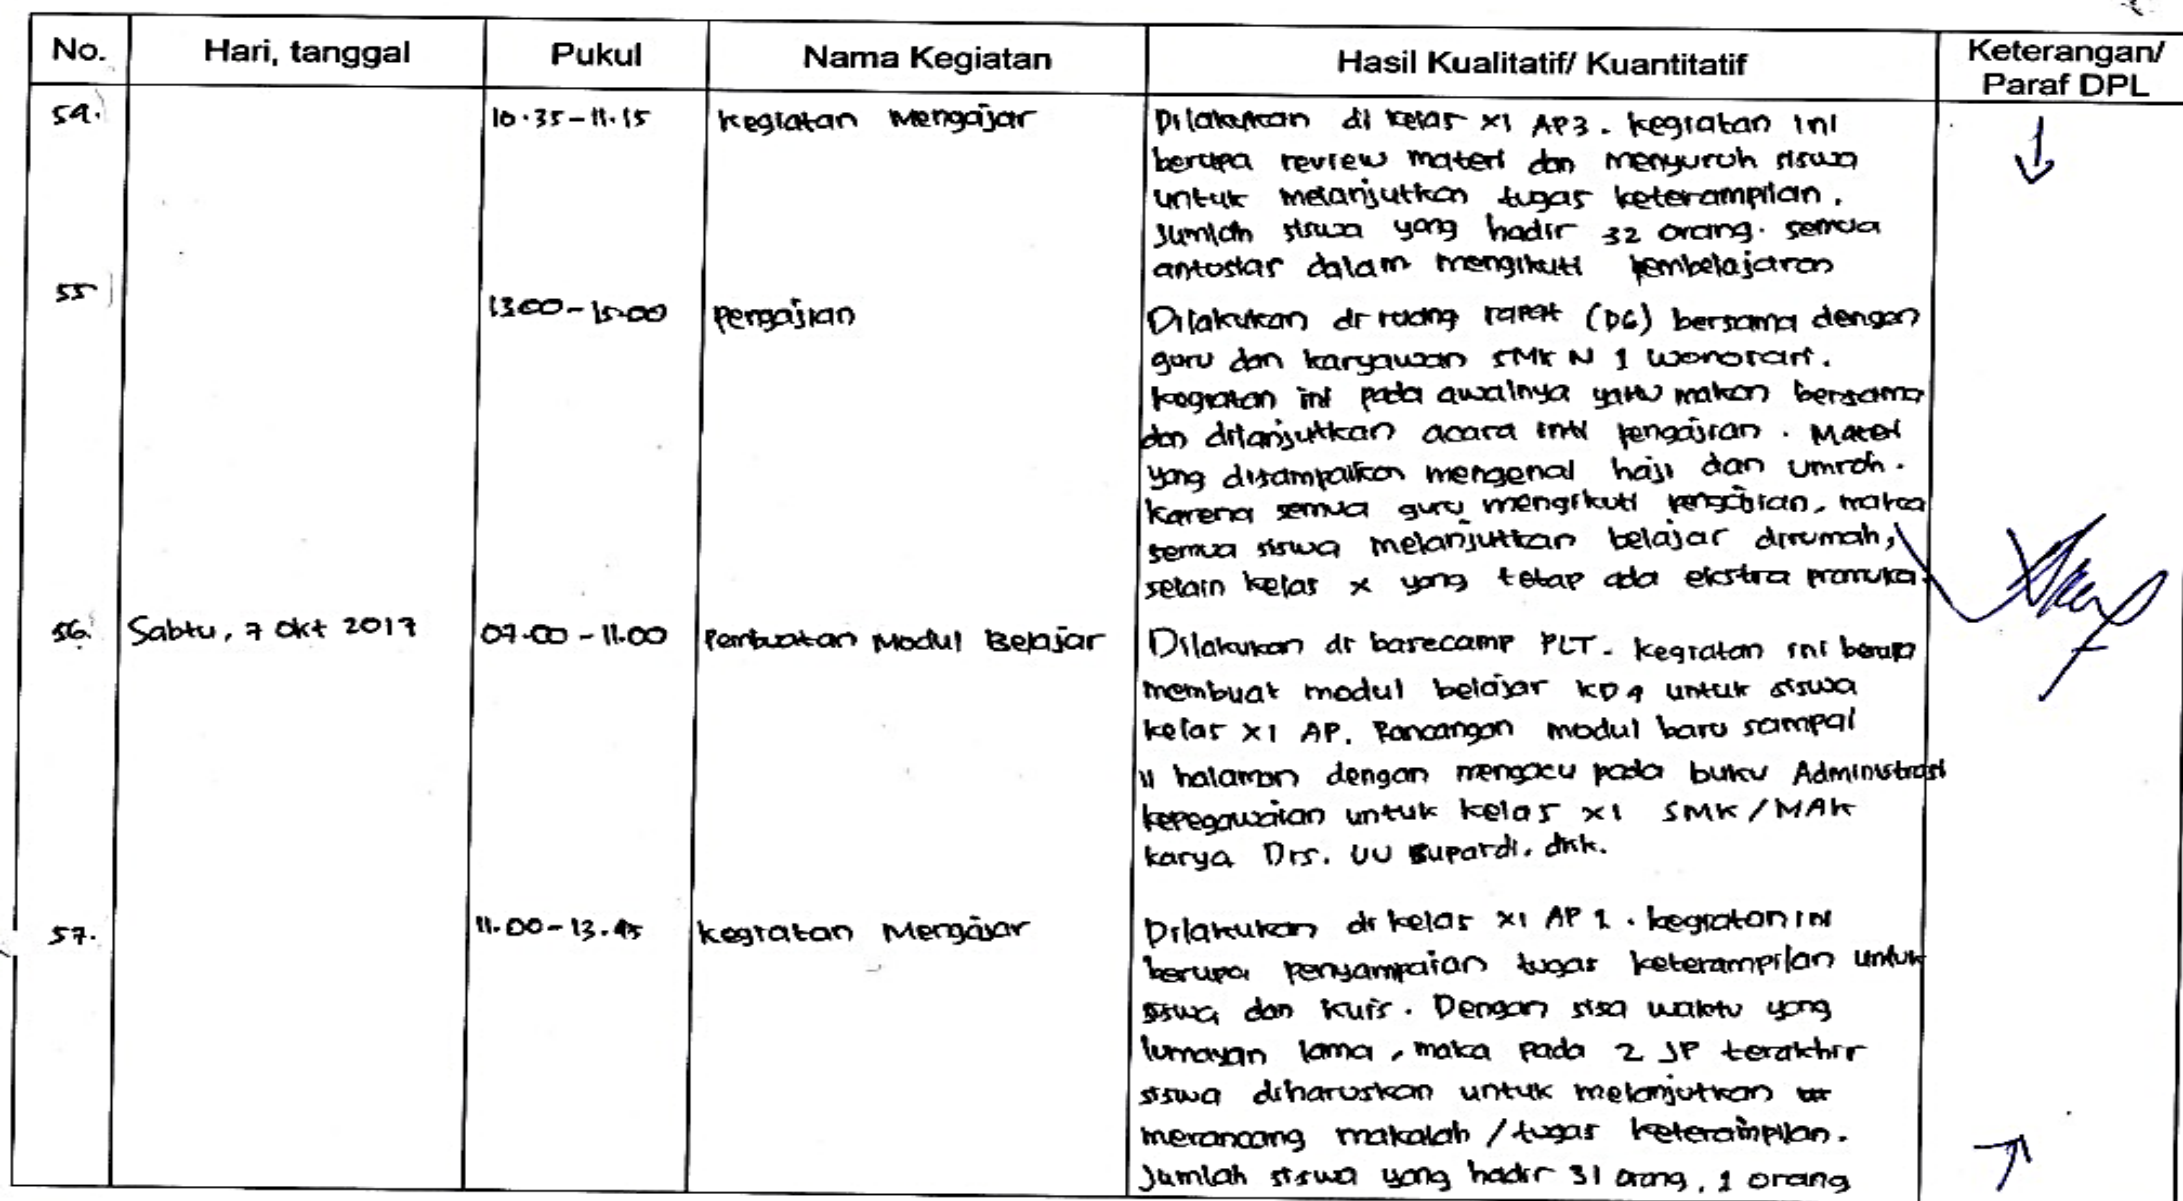 No. Hari, tanggal Pukul Nama Kegiatan Hasil Kualitatif/ Kuantitatif Keterangan/ Paraf DPL
54. 10.35-11.15 Kegiatan Mengajar Dilakukan di kelas XI AP3. Kegiatan ini
berupa review materi dan menyuruh siswa
untuk melanjutkan tugas keterampilan.
Jumlah siswa yang hadir 32 orang. semua
antosias dalam mengikuti pembelajaran
55 13.00-15.00 Pengajian Dilakukan di ruang rapat (D6) bersama dengan
guru dan karyawan SMK N 1 Wonosari.
Kegiatan ini pada awalnya yaitu makan bersama
dan dilanjutkan acara inti pengajian. Materi
yang disampaikan mengenai haji dan umroh.
Karena semua guru mengikuti pengajian, maka
semua siswa melanjutkan belajar dirumah,
selain kelas X yang tetap ada ekstra pramuka.
56. Sabtu, 7 Okt 2017 07.00-11.00 Pembuatan Modul Belajar Dilakukan di basecamp PLT. Kegiatan ini berupa
membuat modul belajar KD 4 untuk siswa
kelas XI AP. Rancangan modul baru sampai
11 halaman dengan mengacu pada buku Administrasi
kepegawaian untuk kelas XI SMK/MAK
karya Drs. UU Supardi, dkk.
57. 11.00-13.45 Kegiatan Mengajar Dilakukan di kelas XI AP 1. Kegiatan ini
berupa penyampaian tugas keterampilan untuk
siswa dan kuis. Dengan sisa waktu yang
lumayan lama, maka pada 2 JP terakhir
siswa diharuskan untuk melanjutkan
merancang makalah/tugas keterampilan.
Jumlah siswa yang hadir 31 orang, 1 orang